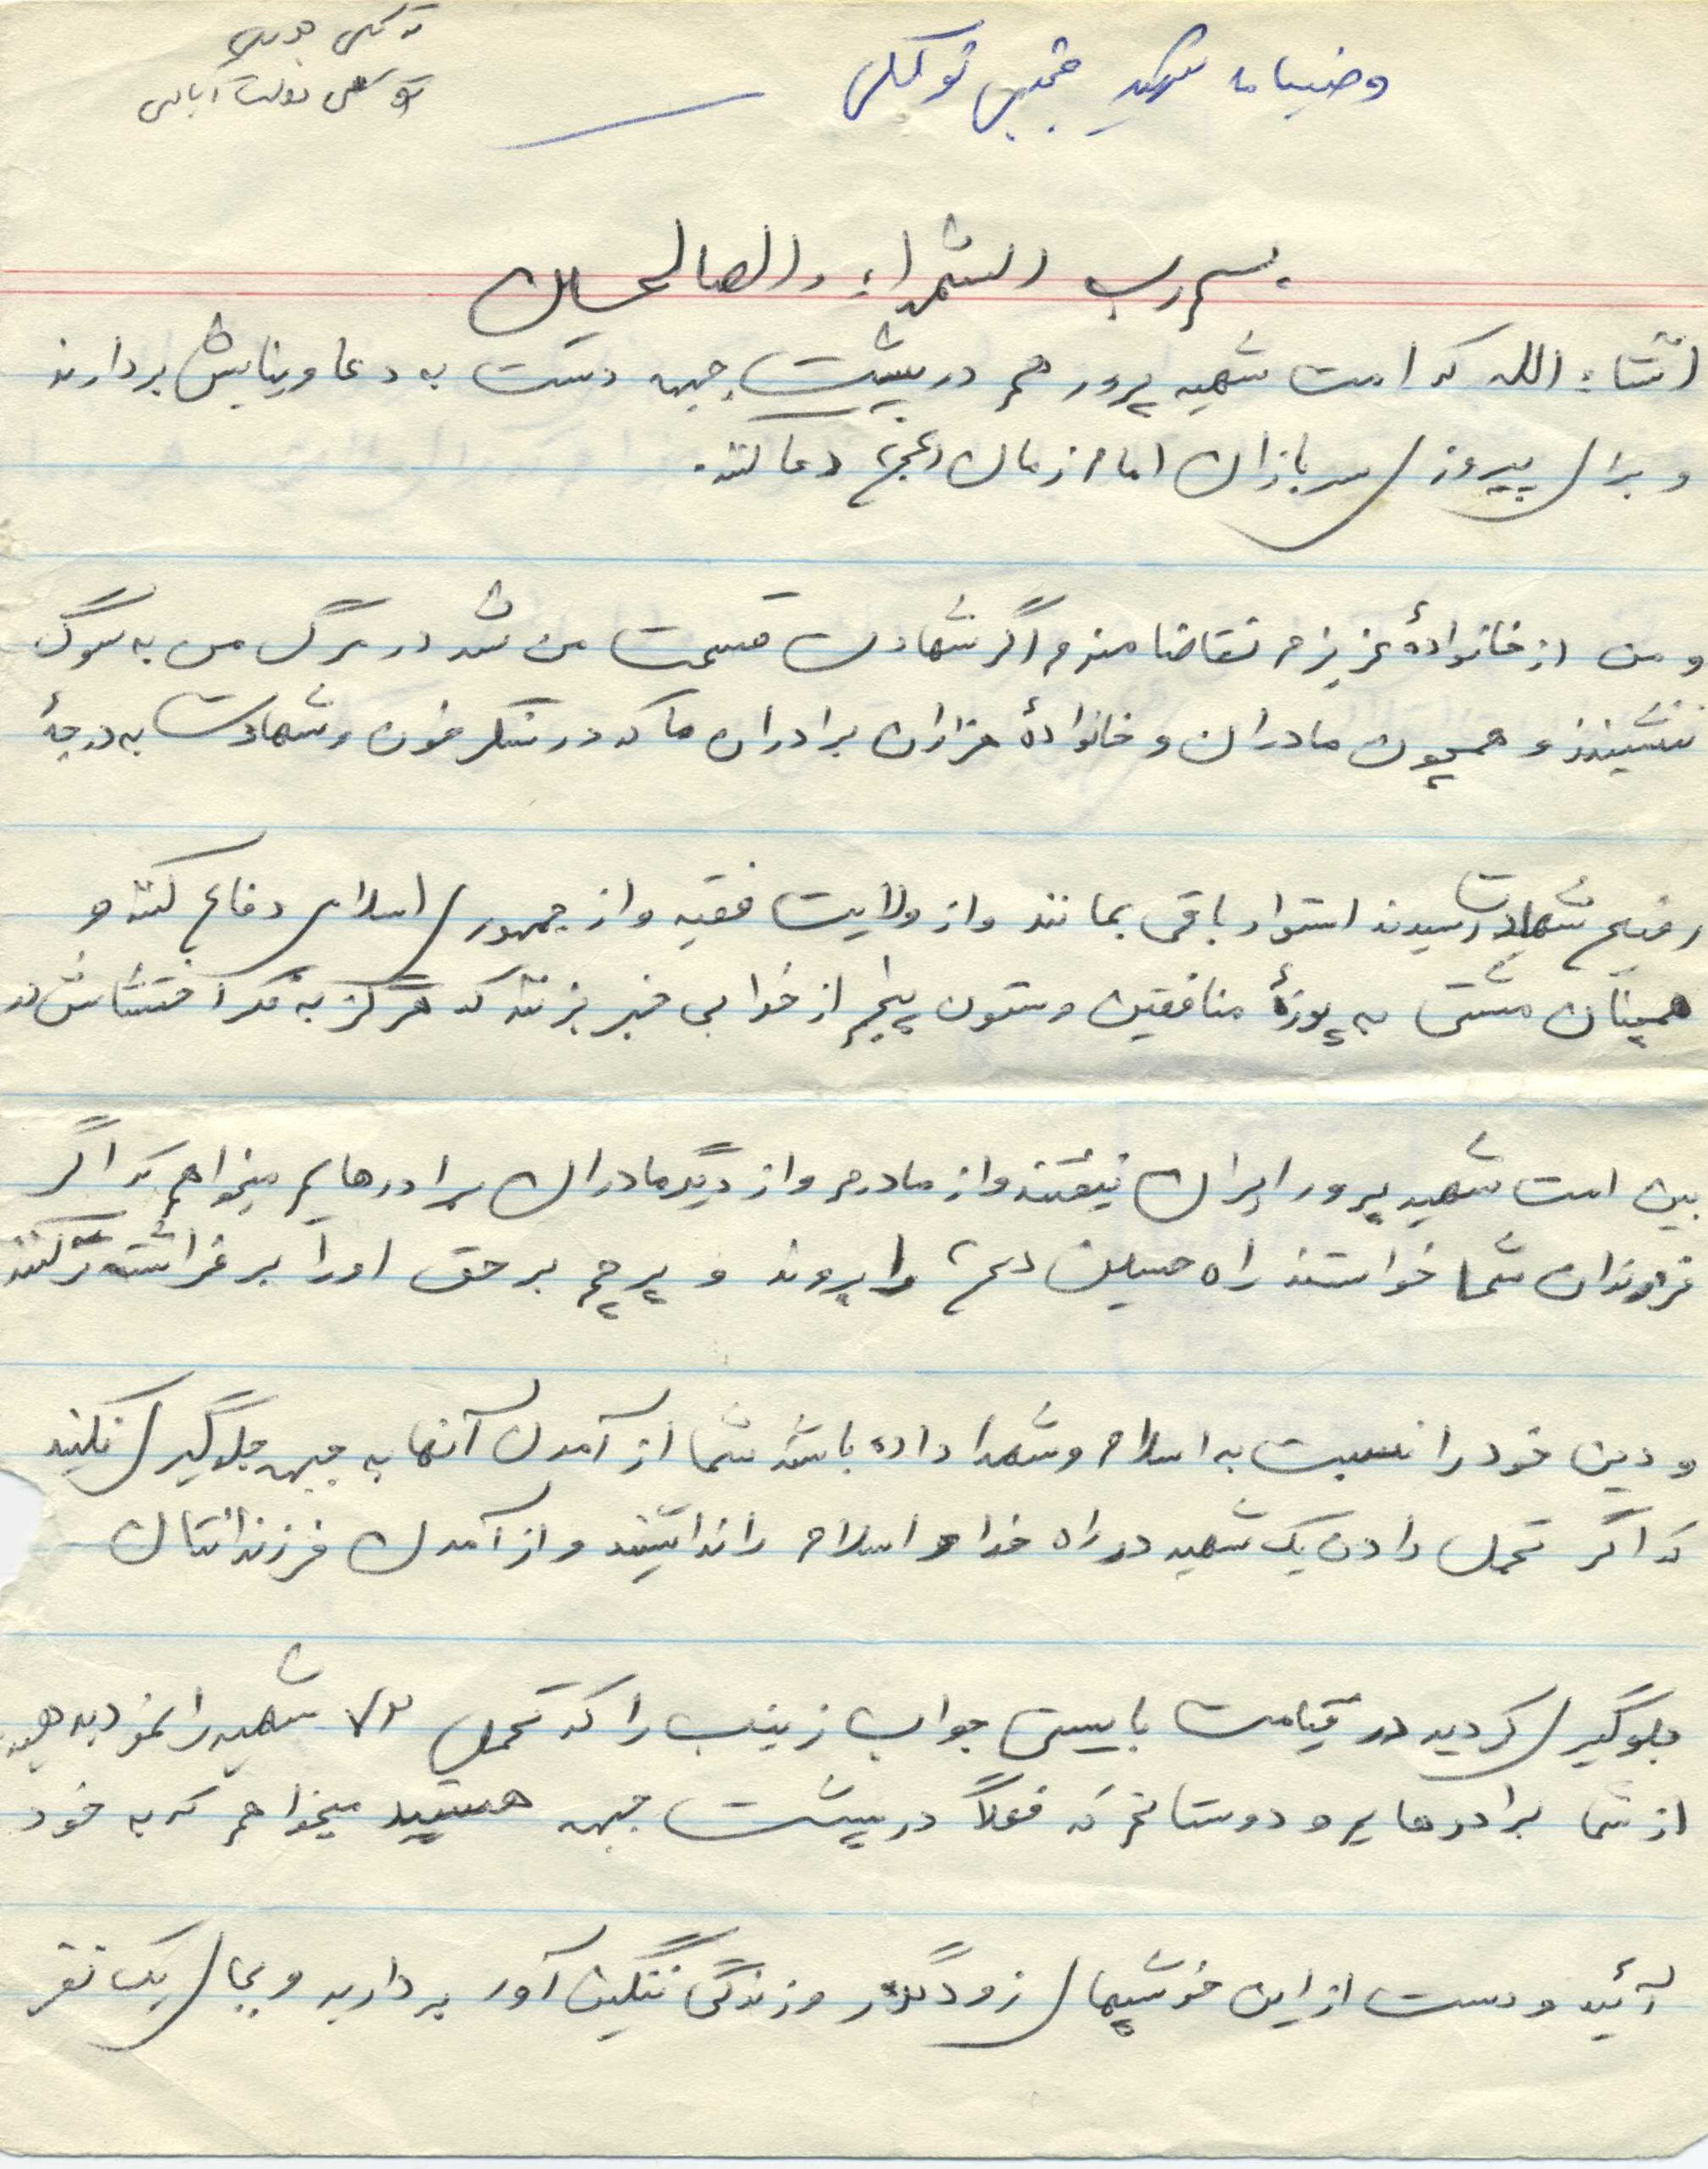 وصیتنامه شهید مجتبی توکلی
توکلی دولت آبادی
بسم رب الشهداء والصالحین
انشاء الله که امت شهید پرور هم در پشت جبهه دست به دعا و نیایش بردارند
و برای پیروزی سربازان امام زمان (عج) دعا کنند.
و من از خانوادهٔ عزیزم تقاضامندم اگر شهادت قسمت من شد در مرگ من به سوگ
ننشینند و همچون مادران و خانوادهٔ هزاران برادران ما که در سنگر خون و شهادت به درجهٔ
رفیع شهادت رسیدند استوار باقی بمانند و از ولایت فقیه و از جمهوری اسلامی دفاع کنند و
همچنان مشتی به پوزهٔ منافقین و ستون پنجم از خدا بی خبر بزنند که هرگز به فکر اغتشاش در
بین امت شهید پرور ایران نیفتند و از مادرم و از دیگر مادران برادرهایم میخواهم که اگر
فرزندان شما خواستند راه حسین (ع) را بروند و پرچم بر حق او را بر فراشته تر کنند
و دین خود را نسبت به اسلام و شهدا داده باشند شما از آمدن آنها به جبهه جلوگیری نکنید
که اگر تحمل دادن یک شهید در راه خدا و اسلام را نداشتید و از آمدن فرزندانتان
جلوگیری کردید در قیامت بایستی جواب زینب را که تحمل ۷۲ شهید را نمود بدهید
از شما برادرهایم و دوستانم که فعلاً در پشت جبهه هستید میخواهم که به خود
آئید و دست از این خوشیهای زودگذر و زندگی ننگین آور بردارید و بجای یک نفر